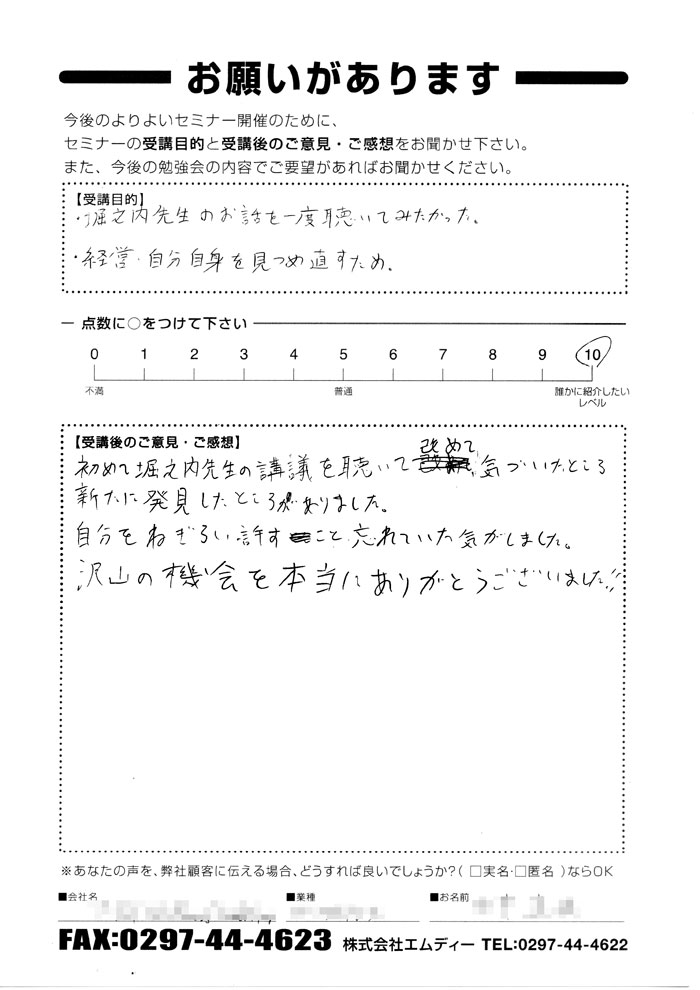 お願いがあります
今後のよりよいセミナー開催のために、
セミナーの受講目的と受講後のご意見・ご感想をお聞かせ下さい。
また、今後の勉強会の内容でご要望があればお聞かせください。
【受講目的】
・堀之内先生のお話を一度聴いてみたかった。
・経営・自分自身を見つめ直すため。
点数に○をつけて下さい
0 1 2 3 4 5 6 7 8 9 10
不満 普通 誰かに紹介したいレベル
【受講後のご意見・ご感想】
初めて堀之内先生の講議を聴いて改めて気づいたところ
新たに発見したところがありました。
自分をねぎらい許すこと忘れていた気がしました。
沢山の機会を本当にありがとうございました!!
※あなたの声を、弊社顧客に伝える場合、どうすれば良いでしょうか?( □実名・□匿名 )ならOK
■会社名 ■業種 ■お名前
FAX:0297-44-4623 株式会社エムディー TEL:0297-44-4622